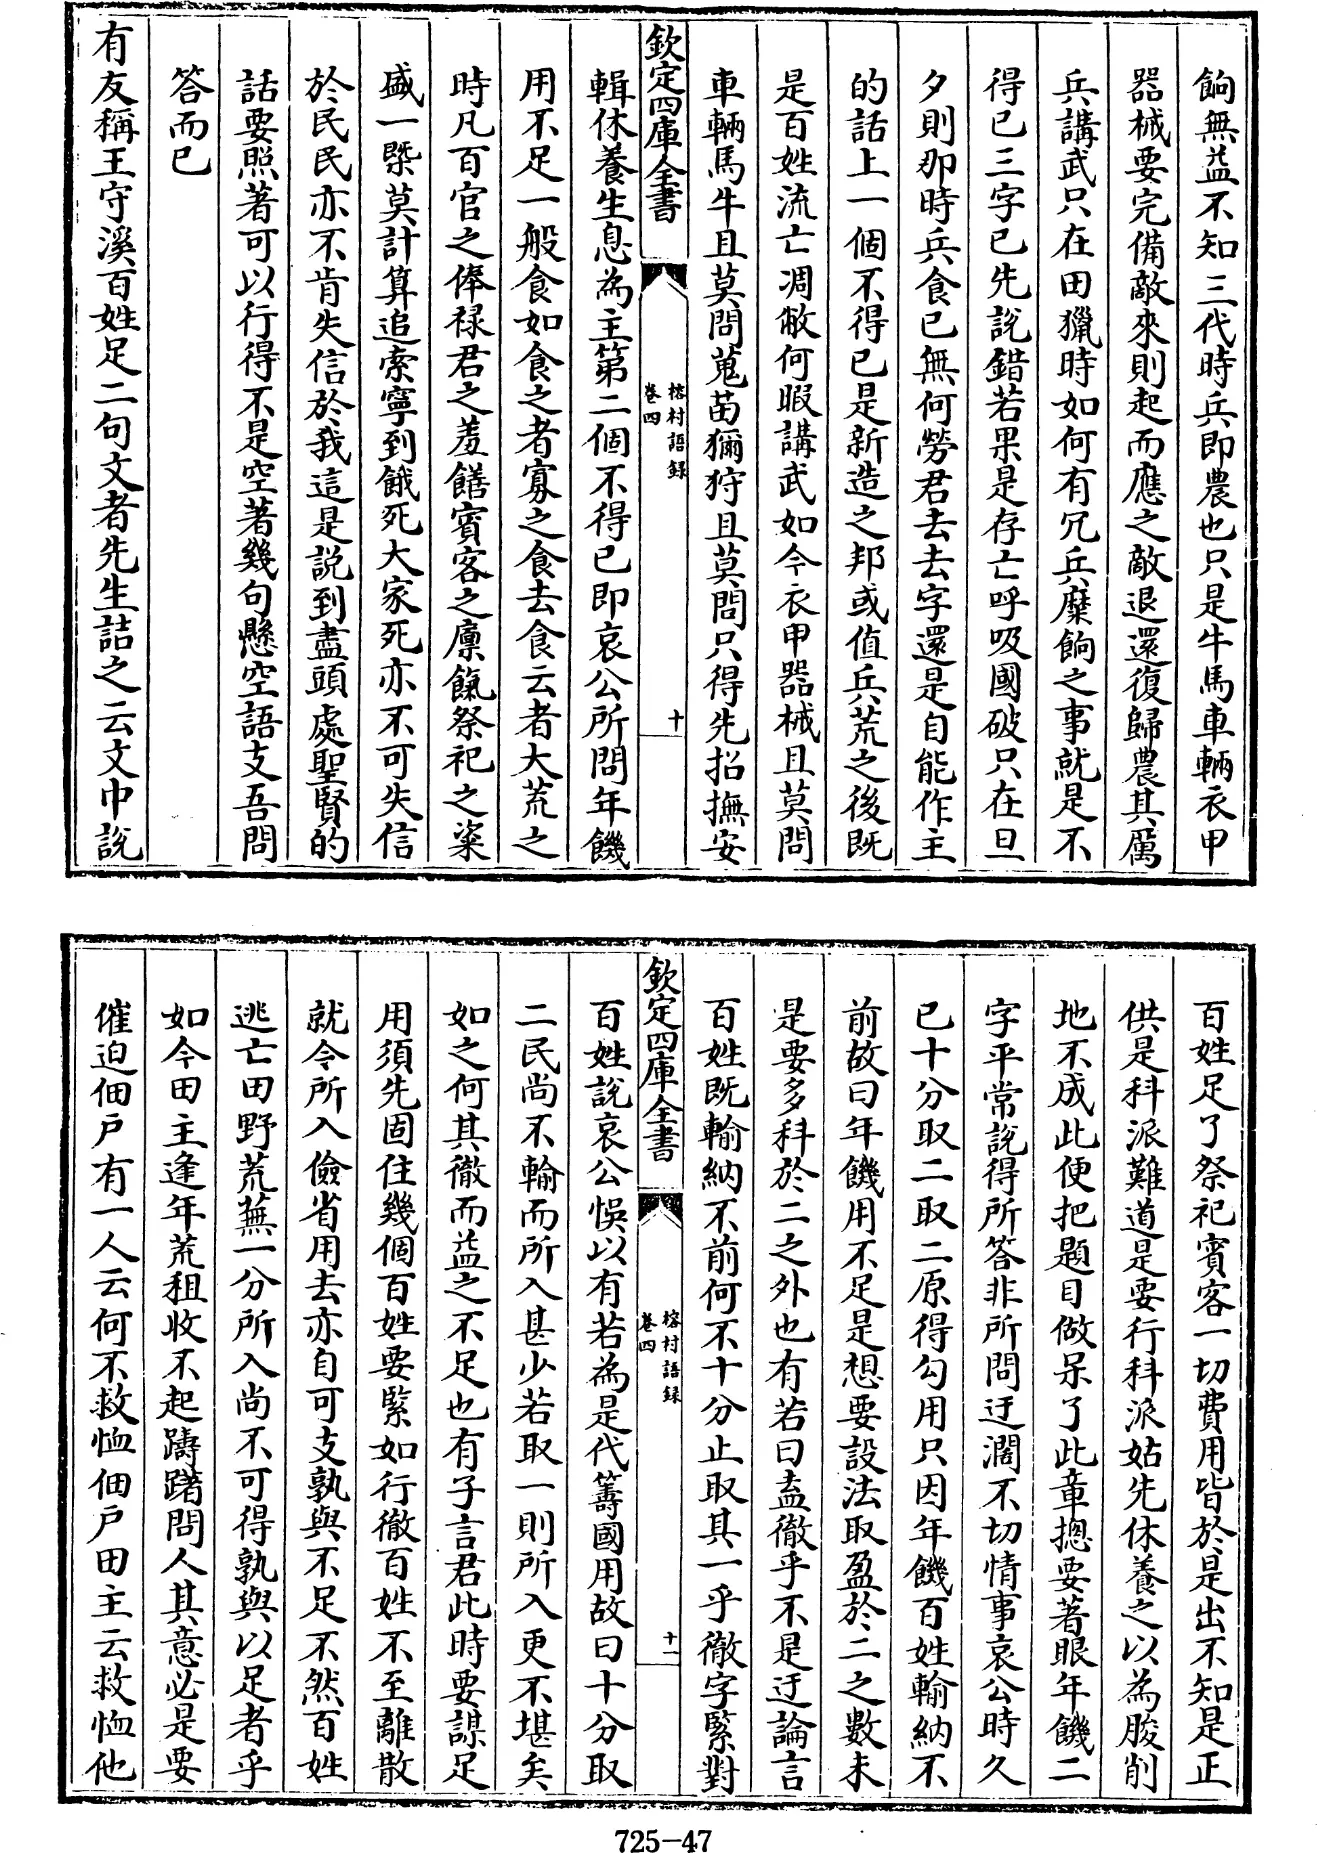 餉無益不知三代時兵即農也只是牛馬車輛衣甲
器械要完備敵來則起而應之敵退還復歸農其厲
兵講武只在田獵時如何有冗兵糜餉之事就是不
得已三字已先說錯若果是存亡呼吸國破只在旦
夕則那時兵食已無何勞君去去字還是自能作主
的話上一個不得已是新造之邦或值兵荒之後既
是百姓流亡凋敝何暇講武如今衣甲器械且莫問
車輛馬牛且莫問蒐苗獮狩且莫問只得先招撫安
欽定四庫全書
榕村語錄
卷四
十
輯休養生息為主第二個不得已即哀公所問年饑
用不足一般食如食之者寡之食去食云者大荒之
時凡百官之俸祿君之羞饍賓客之廩餼祭祀之粢
盛一槩莫計算追索寧到餓死大家死亦不可失信
於民民亦不肯失信於我這是説到盡頭處聖賢的
話要照著可以行得不是空著幾句懸空語支吾問
答而已
有友稱王守溪百姓足二句文者先生詰之云文中説
百姓足了祭祀賓客一切費用皆於是出不知是正
供是科派難道是要行科派姑先休養之以為朘削
地不成此便把題目做呆了此章揔要著眼年饑二
字平常說得所答非所問迂濶不切情事哀公時久
已十分取二取二原得勾用只因年饑百姓輸納不
前故曰年饑用不足是想要設法取盈於二之數未
是要多科於二之外也有若曰盍徹乎不是迂論言
百姓既輸納不前何不十分止取其一乎徹字緊對
欽定四庫全書
榕村語錄
卷四
十一
百姓説哀公悞以有若為是代籌國用故曰十分取
二民尚不輸而所入甚少若取一則所入更不堪矣
如之何其徹而益之不足也有子言君此時要謀足
用須先固住幾個百姓要緊如行徹百姓不至離散
就令所入儉省用去亦自可支孰與不足不然百姓
逃亡田野荒蕪一分所入尚不可得孰與以足者乎
如今田主逢年荒租收不起躊躇問人其意必是要
催迫佃戶有一人云何不救恤佃戶田主云救恤他
725-47